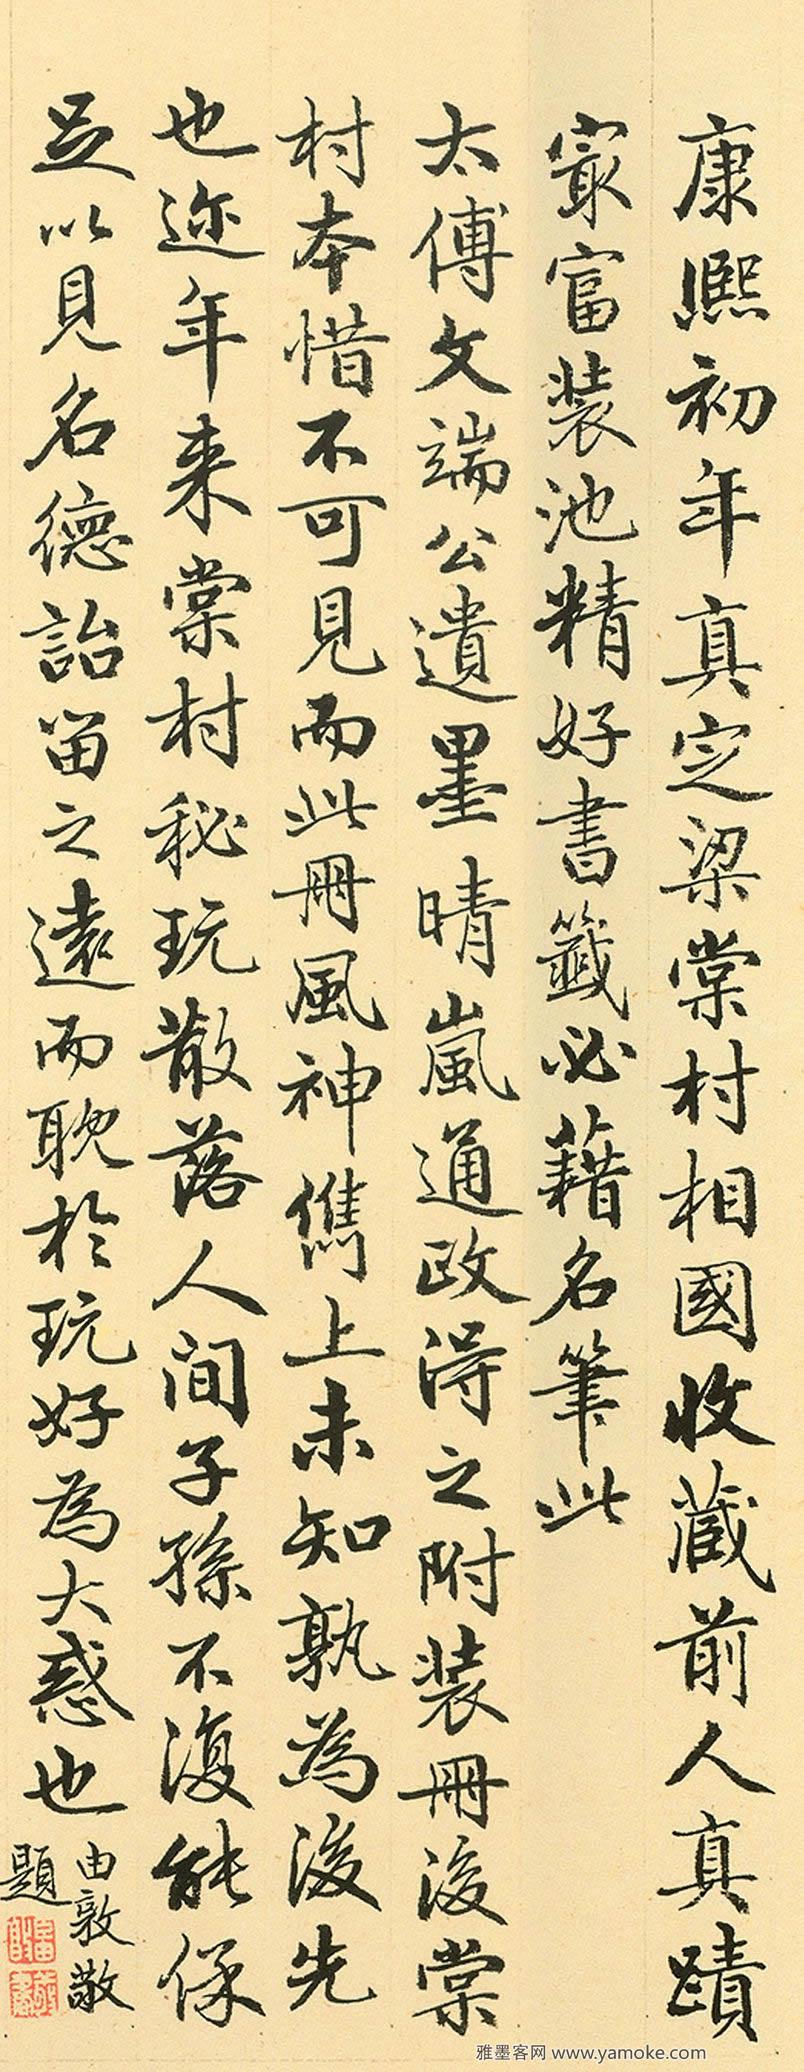 康熙初年真定梁棠村相國收藏前人真蹟
寂富裝池精好書籤必藉名筆此
太傅文端公遺墨晴嵐通政得之附裝冊後棠
村本惜不可見而此冊風神儁上未知孰為後先
也迩年来棠村秘玩散落人間子孫不復能保
足以見名德詒留之遠而耽於玩好為大惑也
由敦敬
題
雅墨客网 www.yamoke.com